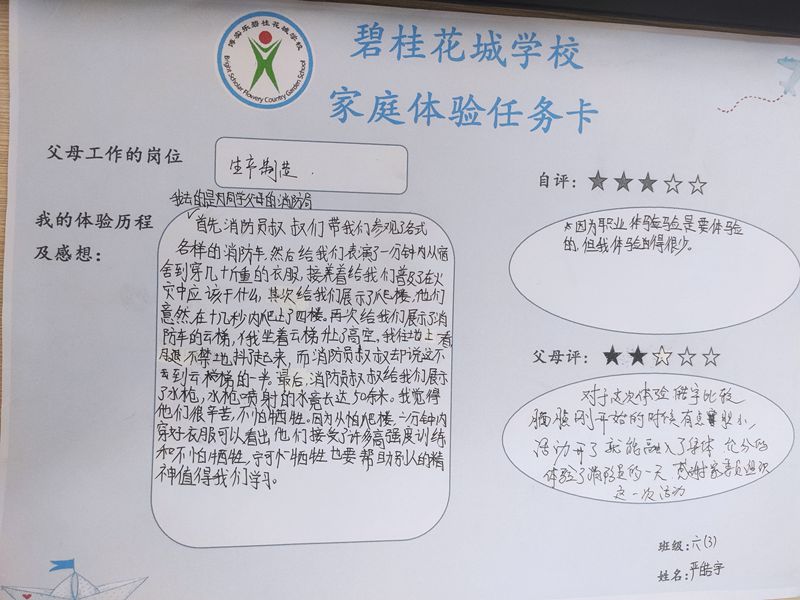 博实乐碧桂花城学校
Bright Scholar Flowery Country Garden School
碧桂花城学校
家庭体验任务卡
父母工作的岗位
生产制造.
我去的是同学父母的消防局
我的体验历程
及感想：
首先，消防员叔叔们带我们参观了各式
各样的消防车，然后给我们表演了一分钟内从宿
舍到穿几十斤重的衣服，接着给我们普及了在火
灾中应该干什么，其次给我们展示了爬楼，他们
竟然在十几秒内爬上了四楼。再次给我们展示了消
防车的云梯，我坐着云梯升上了高空。我往地上看
腿不禁地抖了起来，而消防员叔叔却说这不
到云梯的一半。最后，消防员叔叔给我们展示
了水枪，水枪喷射的水竟长达50余米。我觉得
他们很辛苦，不怕牺牲。因为从怕爬楼，一分钟内
穿好衣服可以看出，他们接受了许多高强度训练
和不怕牺牲，宁可牺牲也要帮助别人的精
神值得我们学习。
自评：
*因为职业体验验是要体验
的，但我体验得很少。
父母评：
对于这次体验 皓宇比较
腼腆 刚开始的时候有点胆小，
活动开了就能融入了集体 充分的
体验了消防员的一天 感谢家委员组织
这一次活动
班级：六(3)
姓名：严皓宇